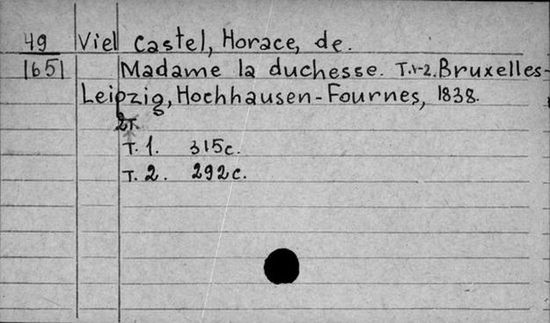 49 Viel Castel, Horace, de.
1651 Madame la duchesse. T.1-2. Bruxelles-
Leipzig, Hochhausen-Fournes, 1838.
2т.
T. 1. 315c.
T. 2. 292c.